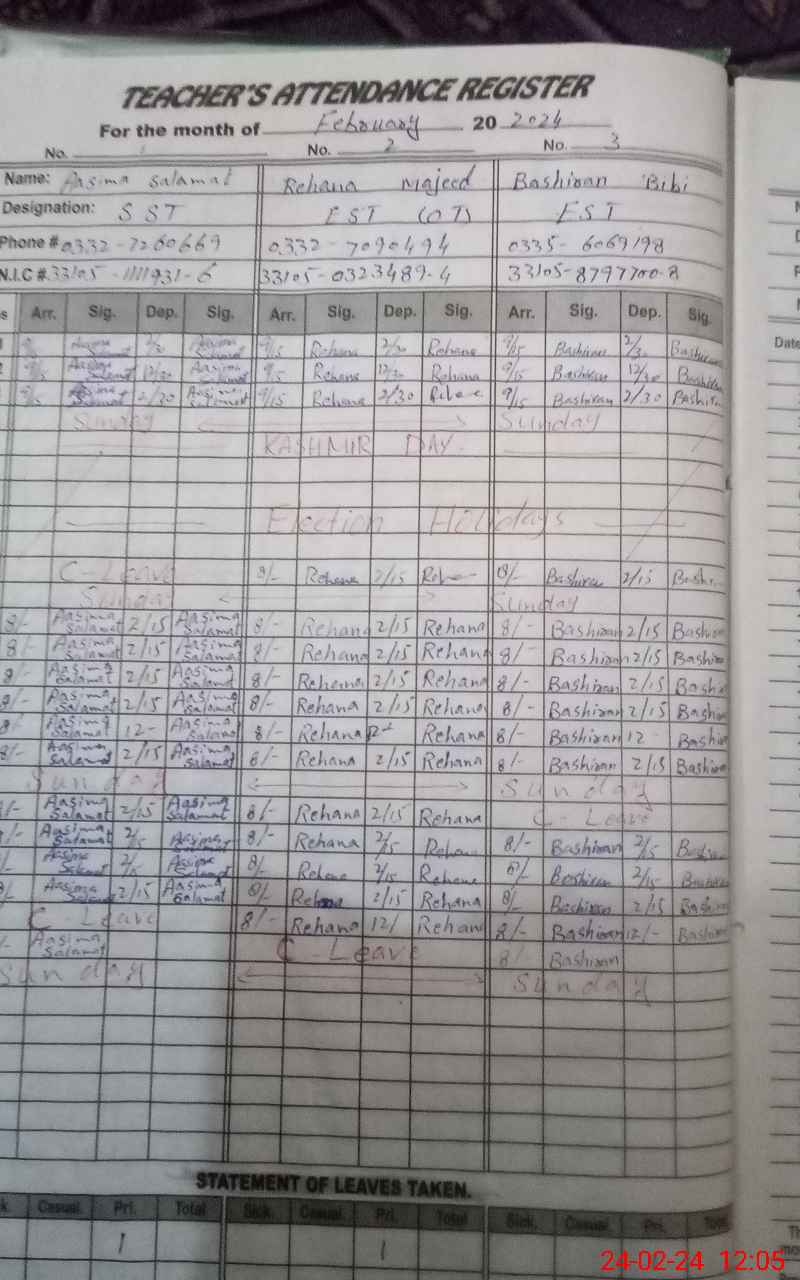 TEACHER'S ATTENDANCE REGISTER
For the month of February 20 2024
No. 1 No. 2 No. 3
Name: Aasima Salamat Rehana Majeed Bashiran Bibi
Designation: SST EST (OT) EST
Phone # 0332-7260669 0332-7090494 0335-6069198
N.I.C #. 33105-1111931-6 33105-0323489-4 33105-8797700-8
Arr. Sig. Dep. Sig. Arr. Sig. Dep. Sig. Arr. Sig. Dep. Sig.
Aasima Salamat 2/30 Aasima Salamat 9/15 Rehana 2/30 Rehana 9/15 Bashiran 2/30 Bashiran
9/15 Aasima Salamat 12/30 Aasima Salamat 9/15 Rehana 12/30 Rehana 9/15 Bashiran 12/30 Bashiran
9/15 Aasima Salamat 2/30 Aasima Salamat 9/15 Rehana 2/30 Rehana 9/15 Bashiran 2/30 Bashiran
Sunday Sunday
KASHMIR DAY
Election Holidays
C-Leave 8/- Rehana 2/15 Rehana 8/- Bashiran 2/15 Bashir
Sunday Sunday
8/- Aasima Salamat 2/15 Aasima Salamat 8/- Rehana 2/15 Rehana 8/- Bashiran 2/15 Bashiran
8/- Aasima Salamat 2/15 Aasima Salamat 8/- Rehana 2/15 Rehana 8/- Bashiran 2/15 Bashiran
8/- Aasima Salamat 2/15 Aasima Salamat 8/- Rehana 2/15 Rehana 8/- Bashiran 2/15 Bashir
8/- Aasima Salamat 2/15 Aasima Salamat 8/- Rehana 2/15 Rehana 8/- Bashiran 2/15 Bashir
8/- Aasima Salamat 12- Aasima Salamat 8/- Rehana 12 Rehana 8/- Bashiran 12 Bashir
8/- Aasima Salamat 2/15 Aasima Salamat 8/- Rehana 2/15 Rehana 8/- Bashiran 2/15 Bashiran
Sunday Sunday
/- Aasima Salamat 2/15 Aasima Salamat 8/- Rehana 2/15 Rehana C-Leave
/- Aasima Salamat 2/15 Aasima Salamat 8/- Rehana 2/15 Rehana 8/- Bashiran 2/15 Bashiran
/- Aasima Salamat 2/15 Aasima Salamat 8/- Rehana 2/15 Rehana 8/- Bashiran 2/15 Bashiran
8/- Aasima Salamat 2/15 Aasima Salamat 8/- Rehana 2/15 Rehana 8/- Bashiran 2/15 Bashiran
C-Leave 8/- Rehana 12/ Rehana 8/- Bashiran 12/- Bashiran
/- Aasima Salamat C-Leave 8/- Bashiran
Sunday Sunday
STATEMENT OF LEAVES TAKEN.
Casual. Pri. Total Sick. Casual. Pri. Total Sick. Casual. Pri. Total
1 1
Date
24-02-24 12:05